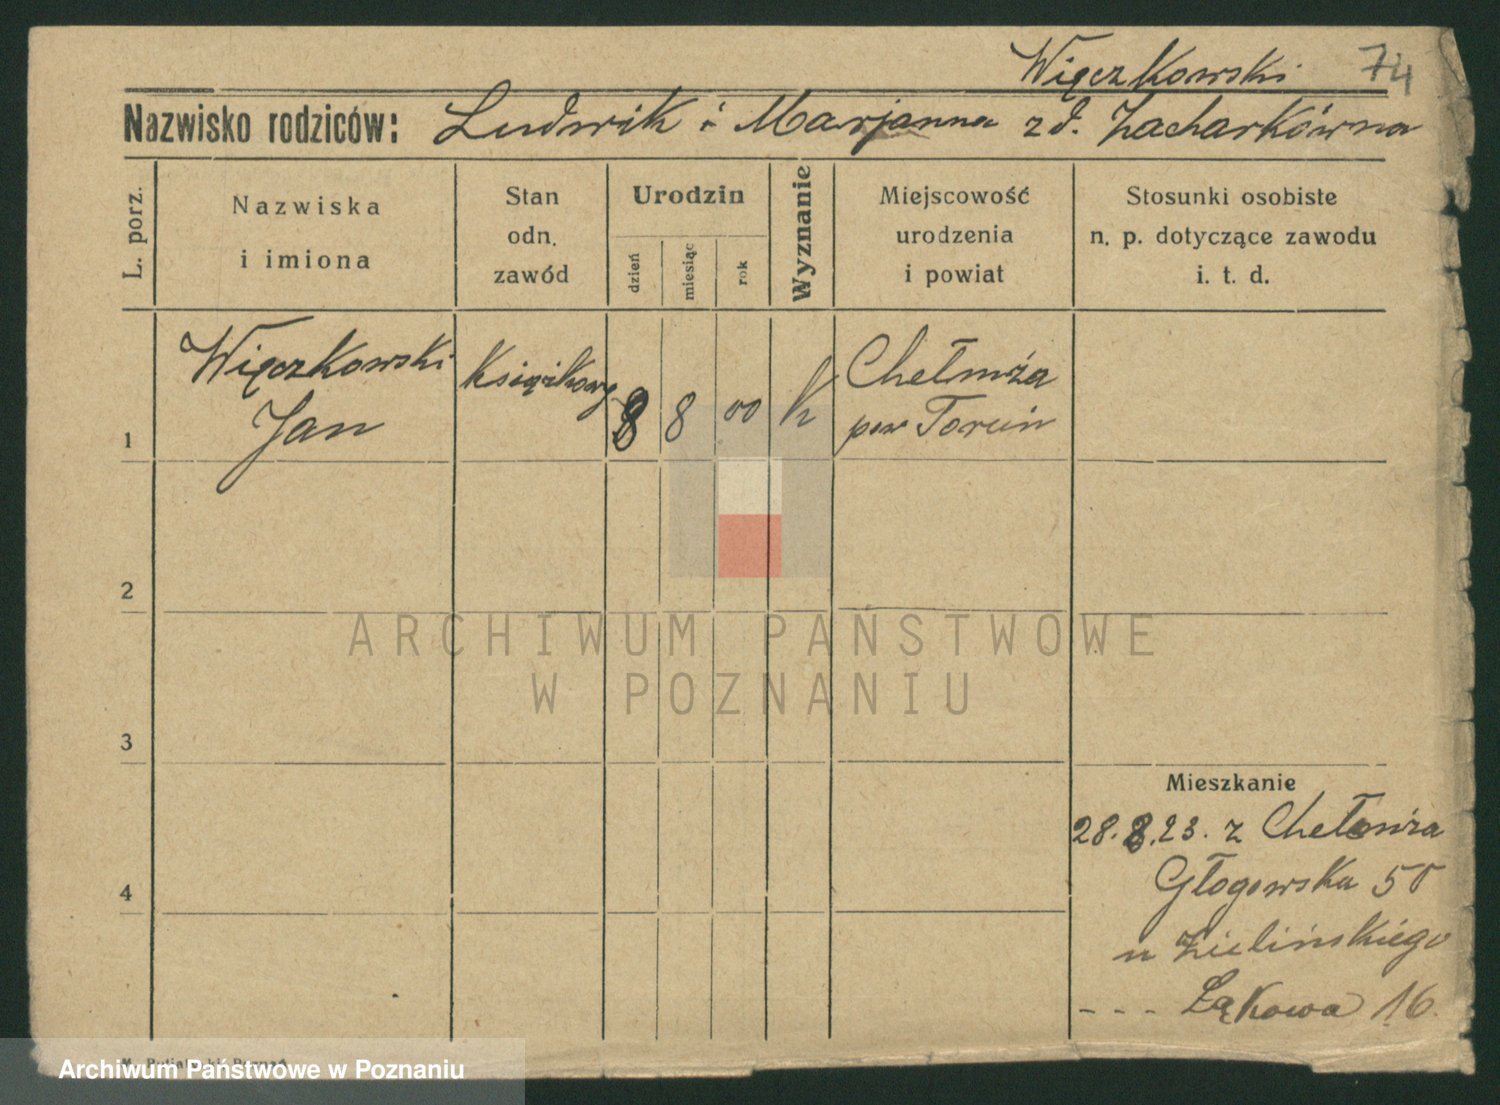 Więczkowski 74
Nazwisko rodziców: Ludwik i Marjanna zd. Zacharkówna
L. porz.
Nazwiska
i imiona
Stan
odn.
zawód
Urodzin
dzień
miesiąc
rok
Wyznanie
Miejscowość
urodzenia
i powiat
Stosunki osobiste
n. p. dotyczące zawodu
i. t. d.
1
Więczkowski
Jan
Książkowy
8 8 00 k
Chełmża
pow Toruń
2
ARCHIWUM PAŃSTWOWE
W POZNANIU
3
Mieszkanie
28.8.23. z Chełmża
4
Głogowska 50
u Zielińskiego
- - - Łąkowa 16.
Poznań
Archiwum Państwowe w Poznaniu